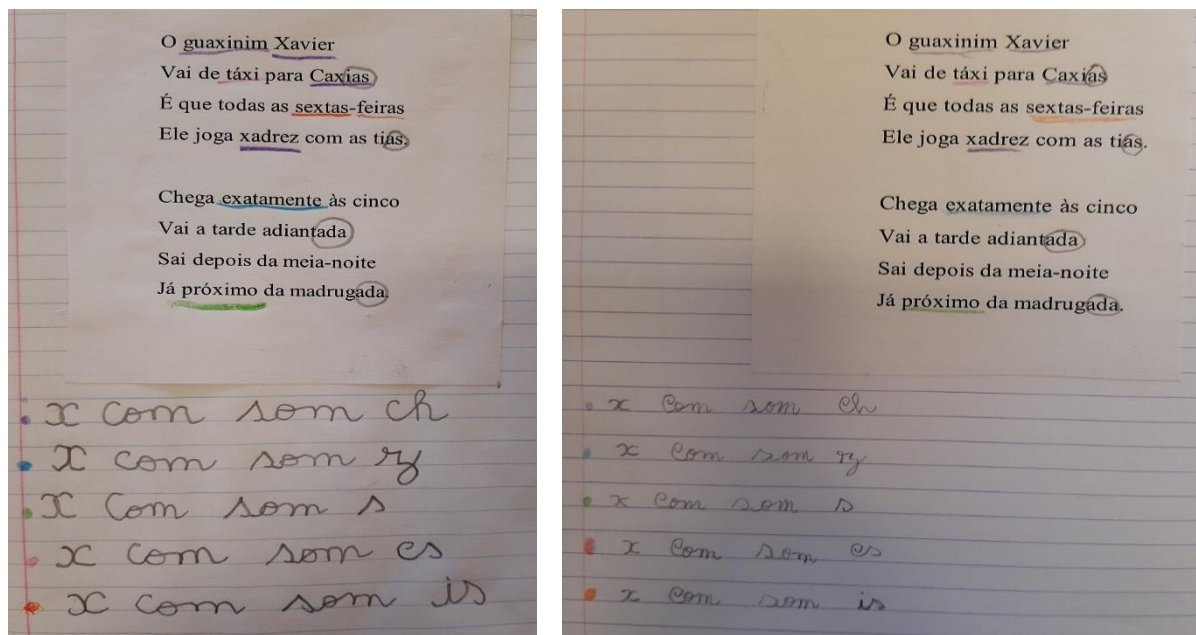 O guaxinim Xavier
Vai de táxi para Caxias
É que todas as sextas-feiras
Ele joga xadrez com as tias.
Chega exatamente às cinco
Vai a tarde adiantada
Sai depois da meia-noite
Já próximo da madrugada.
x com som ch
x com som z
x com som s
x com som cs
x com som is
O guaxinim Xavier
Vai de táxi para Caxias
É que todas as sextas-feiras
Ele joga xadrez com as tias.
Chega exatamente às cinco
Vai a tarde adiantada
Sai depois da meia-noite
Já próximo da madrugada.
x com som ch
x com som z
x com som s
x com som cs
x com som is